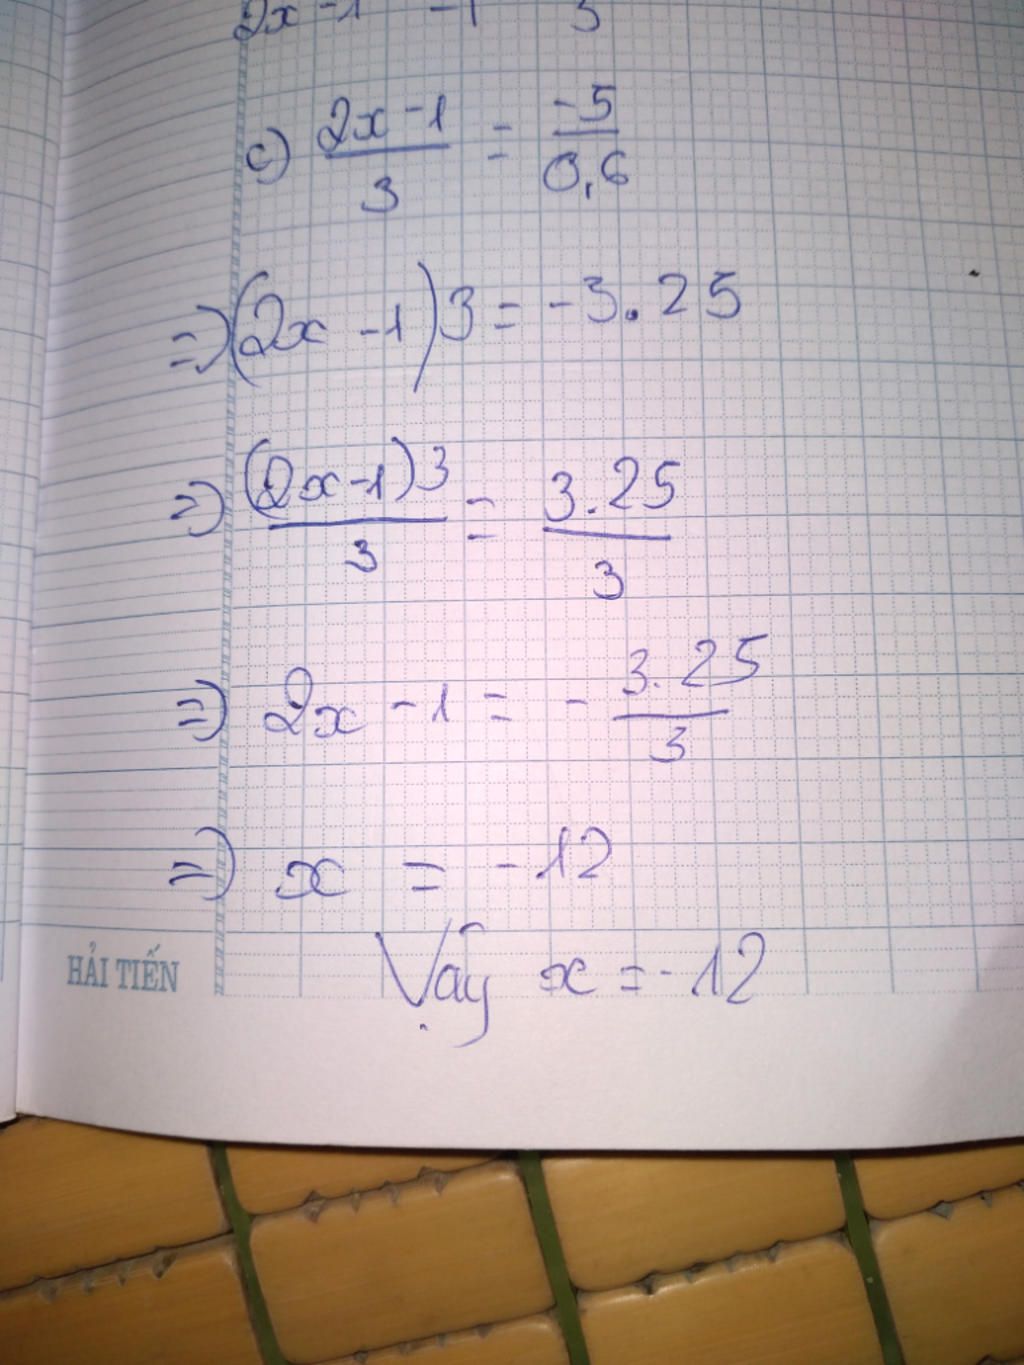 2x-1 -1 3
c) \frac{2x-1}{3} = \frac{-5}{0,6}
=> (2x-1)3 = -3.25
=> \frac{(2x-1)3}{3} = \frac{3.25}{3}
=> 2x-1 = -\frac{3.25}{3}
=> x = -12
Vậy x = -12
HẢI TIẾN